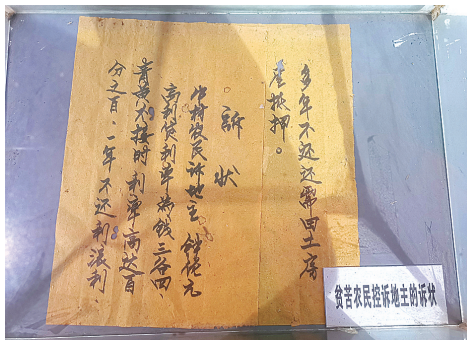 多年不还还需田土房
产抵押。
訴状
中村农民訴地主 钟
高利贷利率為钱三谷四、
青黄不接时利率高达百
分之百、一年不还利滚利、
贫苦农民控诉地主的诉状